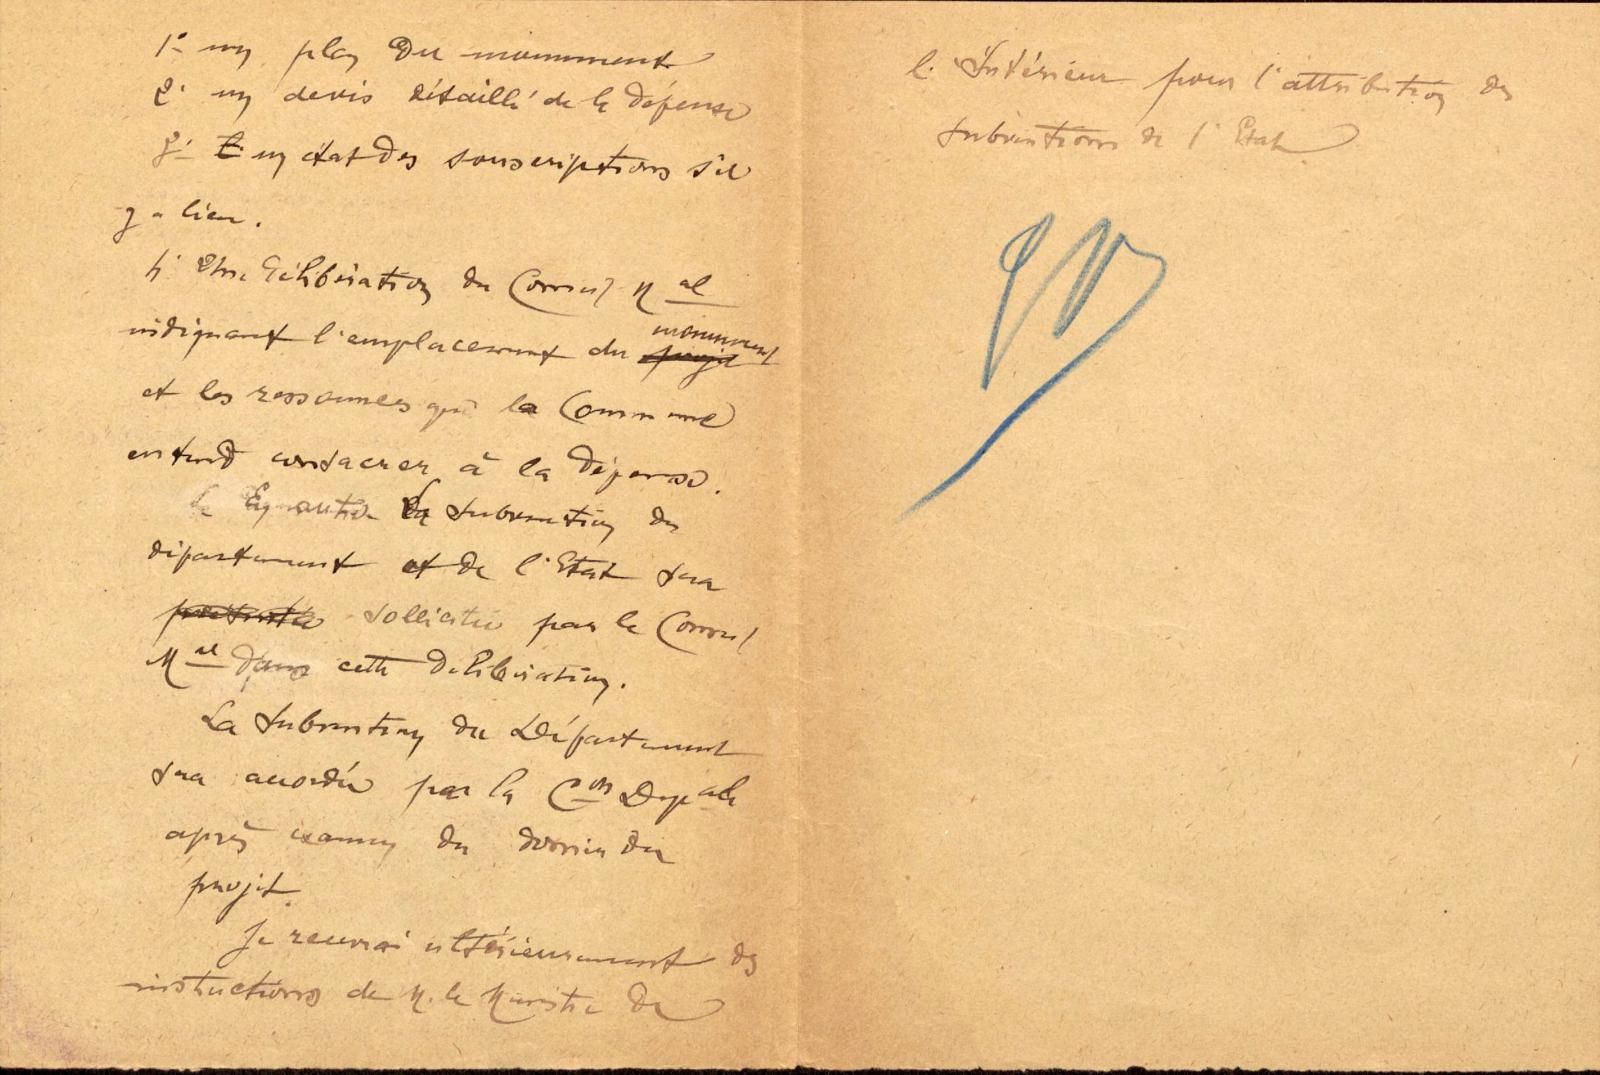 1° un plan du monument
2° un devis détaillé de la dépense
3° un état des souscriptions s'il
y a lieu.
4° Une délibération du Conseil Mal
indiquant l'emplacement du monument
et les ressources que la Commune
entend consacrer à la dépense.
La subvention du
département et de l'Etat sera
sollicitée par le Conseil
Mal dans cette délibération.
La subvention du Département
sera accordée par la Con Depale
après examen du dossier du
projet.
Je recevrai ultérieurement des
instructions de M. le Ministre de
l'Intérieur pour l'attribution des
subventions de l'Etat